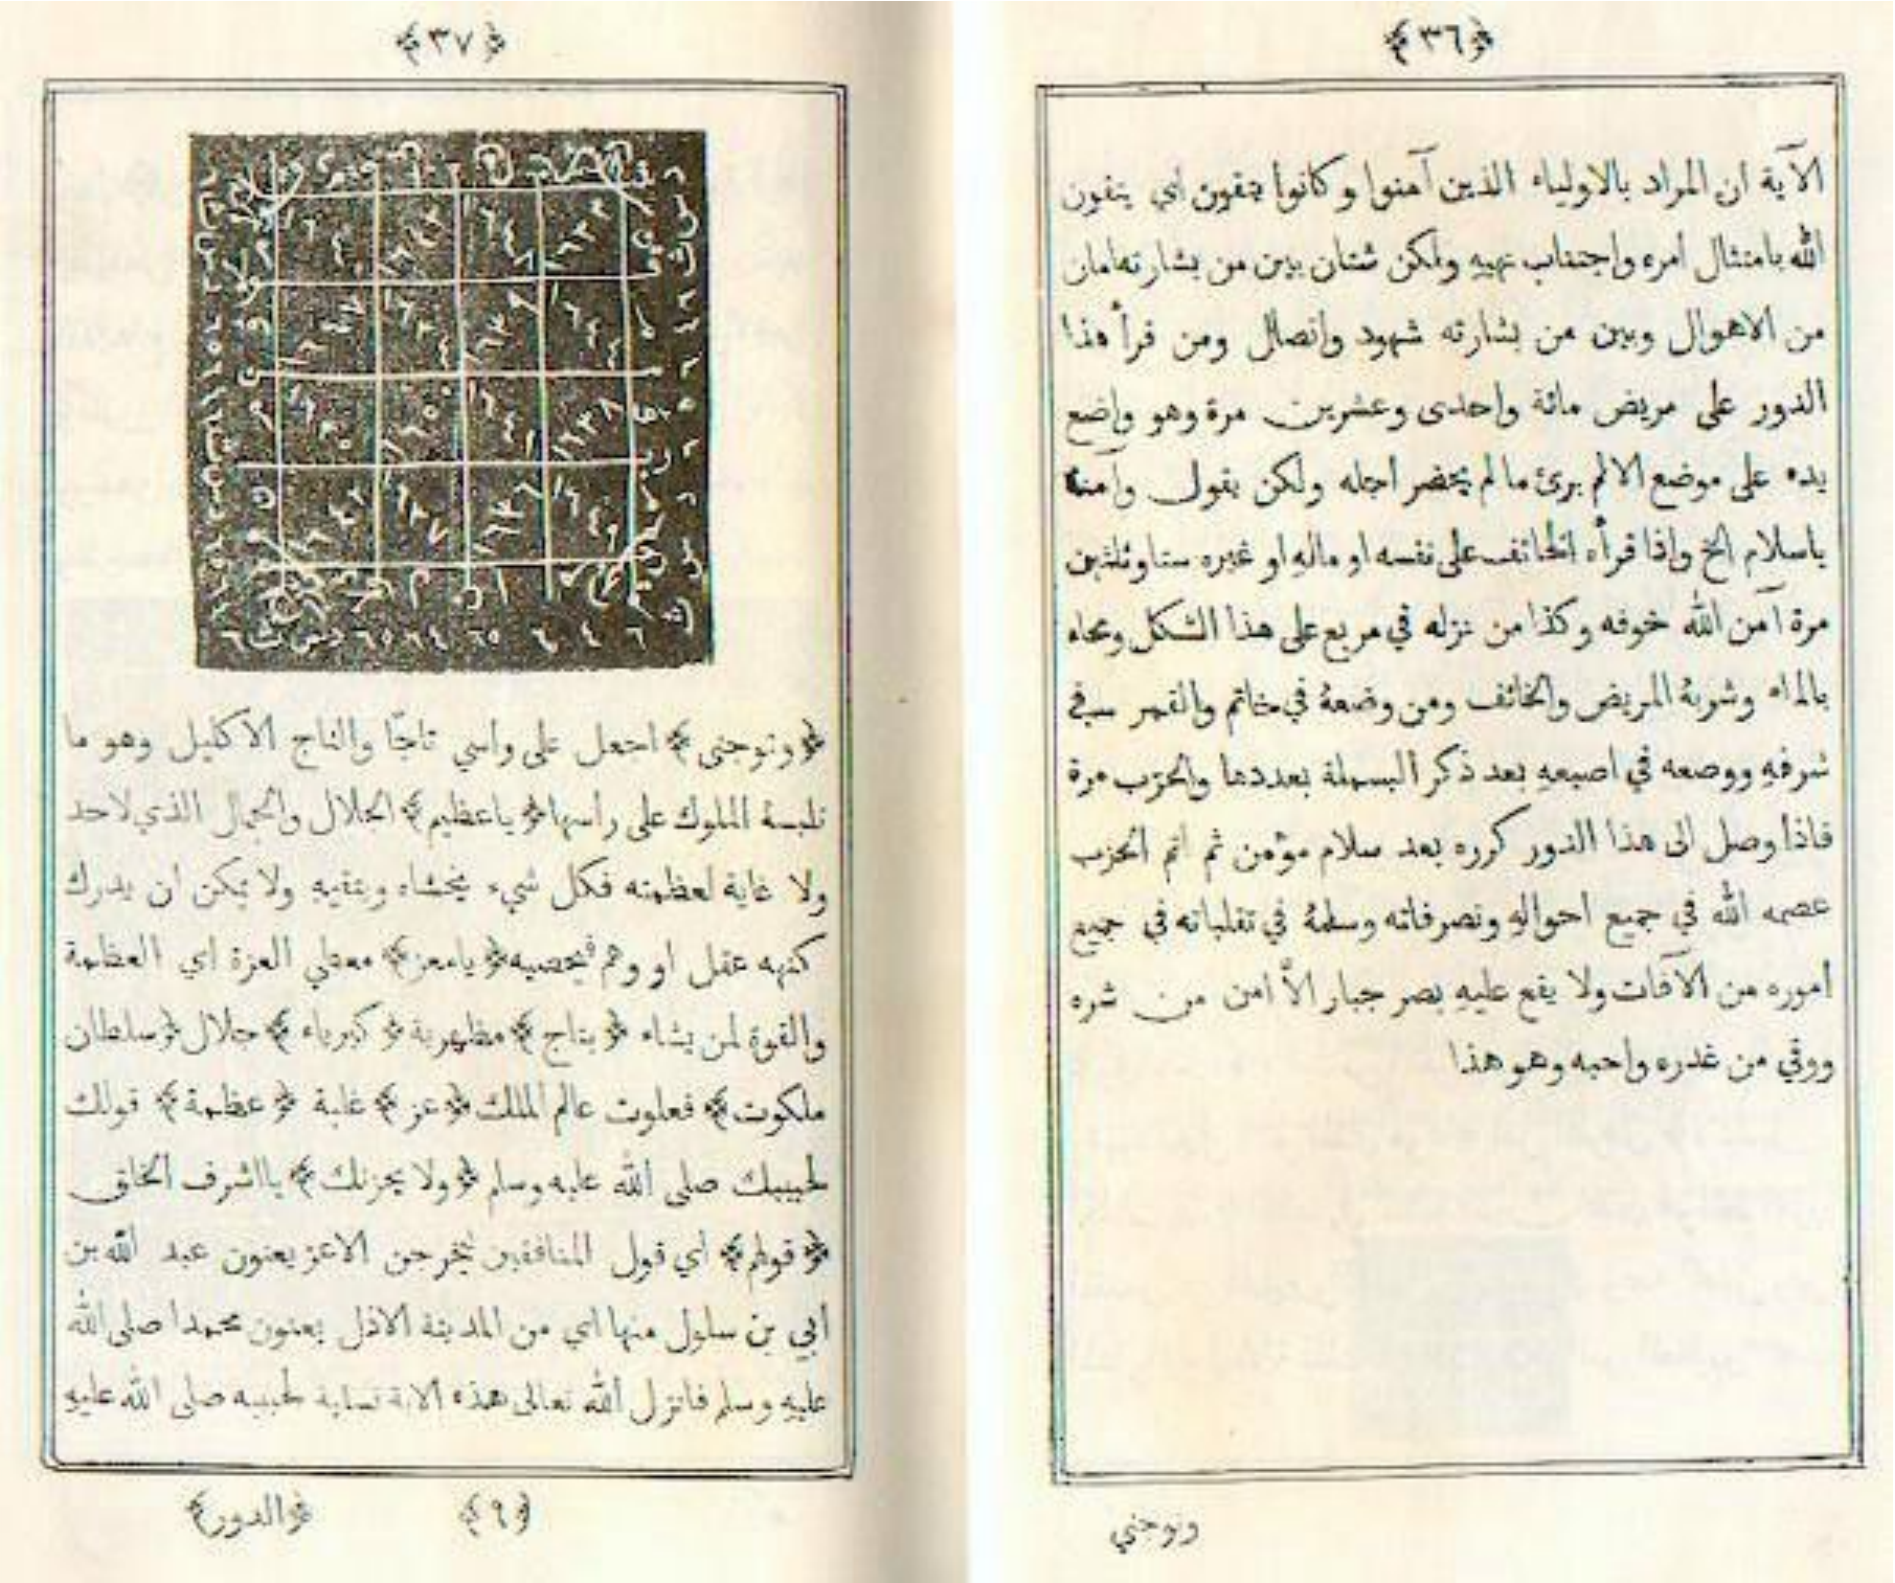 ﴿٣٦﴾
الآية ان المراد بالاولياء الذين آمنوا وكانوا يتقون اي يتقون
الله بامتثال امره واجتناب نهيه ولكن شتان بين من بشارته امان
من الاهوال وبين من بشارته شهود واتصال ومن قرأ هذا
الدور على مريض مائة واحدى وعشرين مرة وهو واضع
يده على موضع الالم برئ ما لم يحضر اجله ولكن يقول وآمنه
ياسلام الخ واذا قرأه الخائف على نفسه او ماله او غيره ستا وثلثين
مرة آمن الله خوفه وكذا من نزله في مربع على هذا الشكل ومحاه
بالماء وشربهُ المريض والخائف ومن وضعهُ في خاتم والقمر في
شرفهِ ووضعه في اصبعهِ بعد ذكر البسملة بعددها والحزب مرة
فاذا وصل الى هذا الدور كرره بعد سلام مؤمن ثم اتم الحزب
عصمه الله في جميع احوالهِ وتصرفاته وسلمهُ في تقلباته في جميع
أموره من الآفات ولا يقع عليهِ بصر جبار الاَّ امن من شره
ووقي من غدره واحبه وهو هذا
وتوجني
﴿٣٧﴾
﴿وتوجني﴾ اجعل على راسي تاجًا والتاج الاكليل وهو ما
تلبسهُ الملوك على رأسها ﴿ياعظيم﴾ الجلال والجمال الذي لاحد
ولا غاية لعظمته فكل شيء يخشاه ويتقيه ولا يمكن ان يدرك
كنهه عقل او وهم فيحصيه ﴿يامعز﴾ معطي العزة اي العظمة
والقوة لمن يشاء ﴿بتاج﴾ مظهرية ﴿كبرياء﴾ جلال ﴿سلطان
ملكوت﴾ فعلوت عالم الملك ﴿عز﴾ غلبة ﴿عظمة﴾ قولك
لحبيبك صلى الله عليه وسلم ﴿ولا يحزنك﴾ يااشرف الخلق
﴿قولهم﴾ اي قول المنافقين ليخرجن الاعز يعنون عبد الله بن
أبي بن سلول منها اي من المدينة الاذل يعنون محمدا صلى الله
عليهِ وسلم فانزل الله تعالى هذه الاية تسلية لحبيبه صلى الله عليهِ
﴿٩﴾
﴿الدور﴾